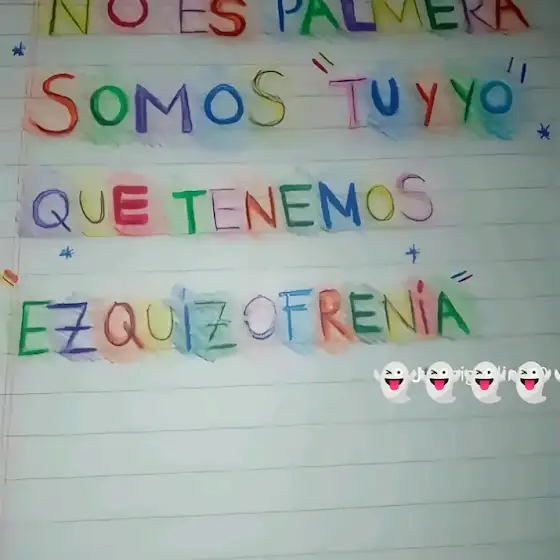 NO ES PALMERA
SOMOS "TU Y YO"
QUE TENEMOS
EZQUIZOFRENIA"